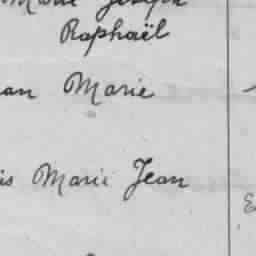 Marie Joseph
Raphaël
an Marie
is Marie Jean